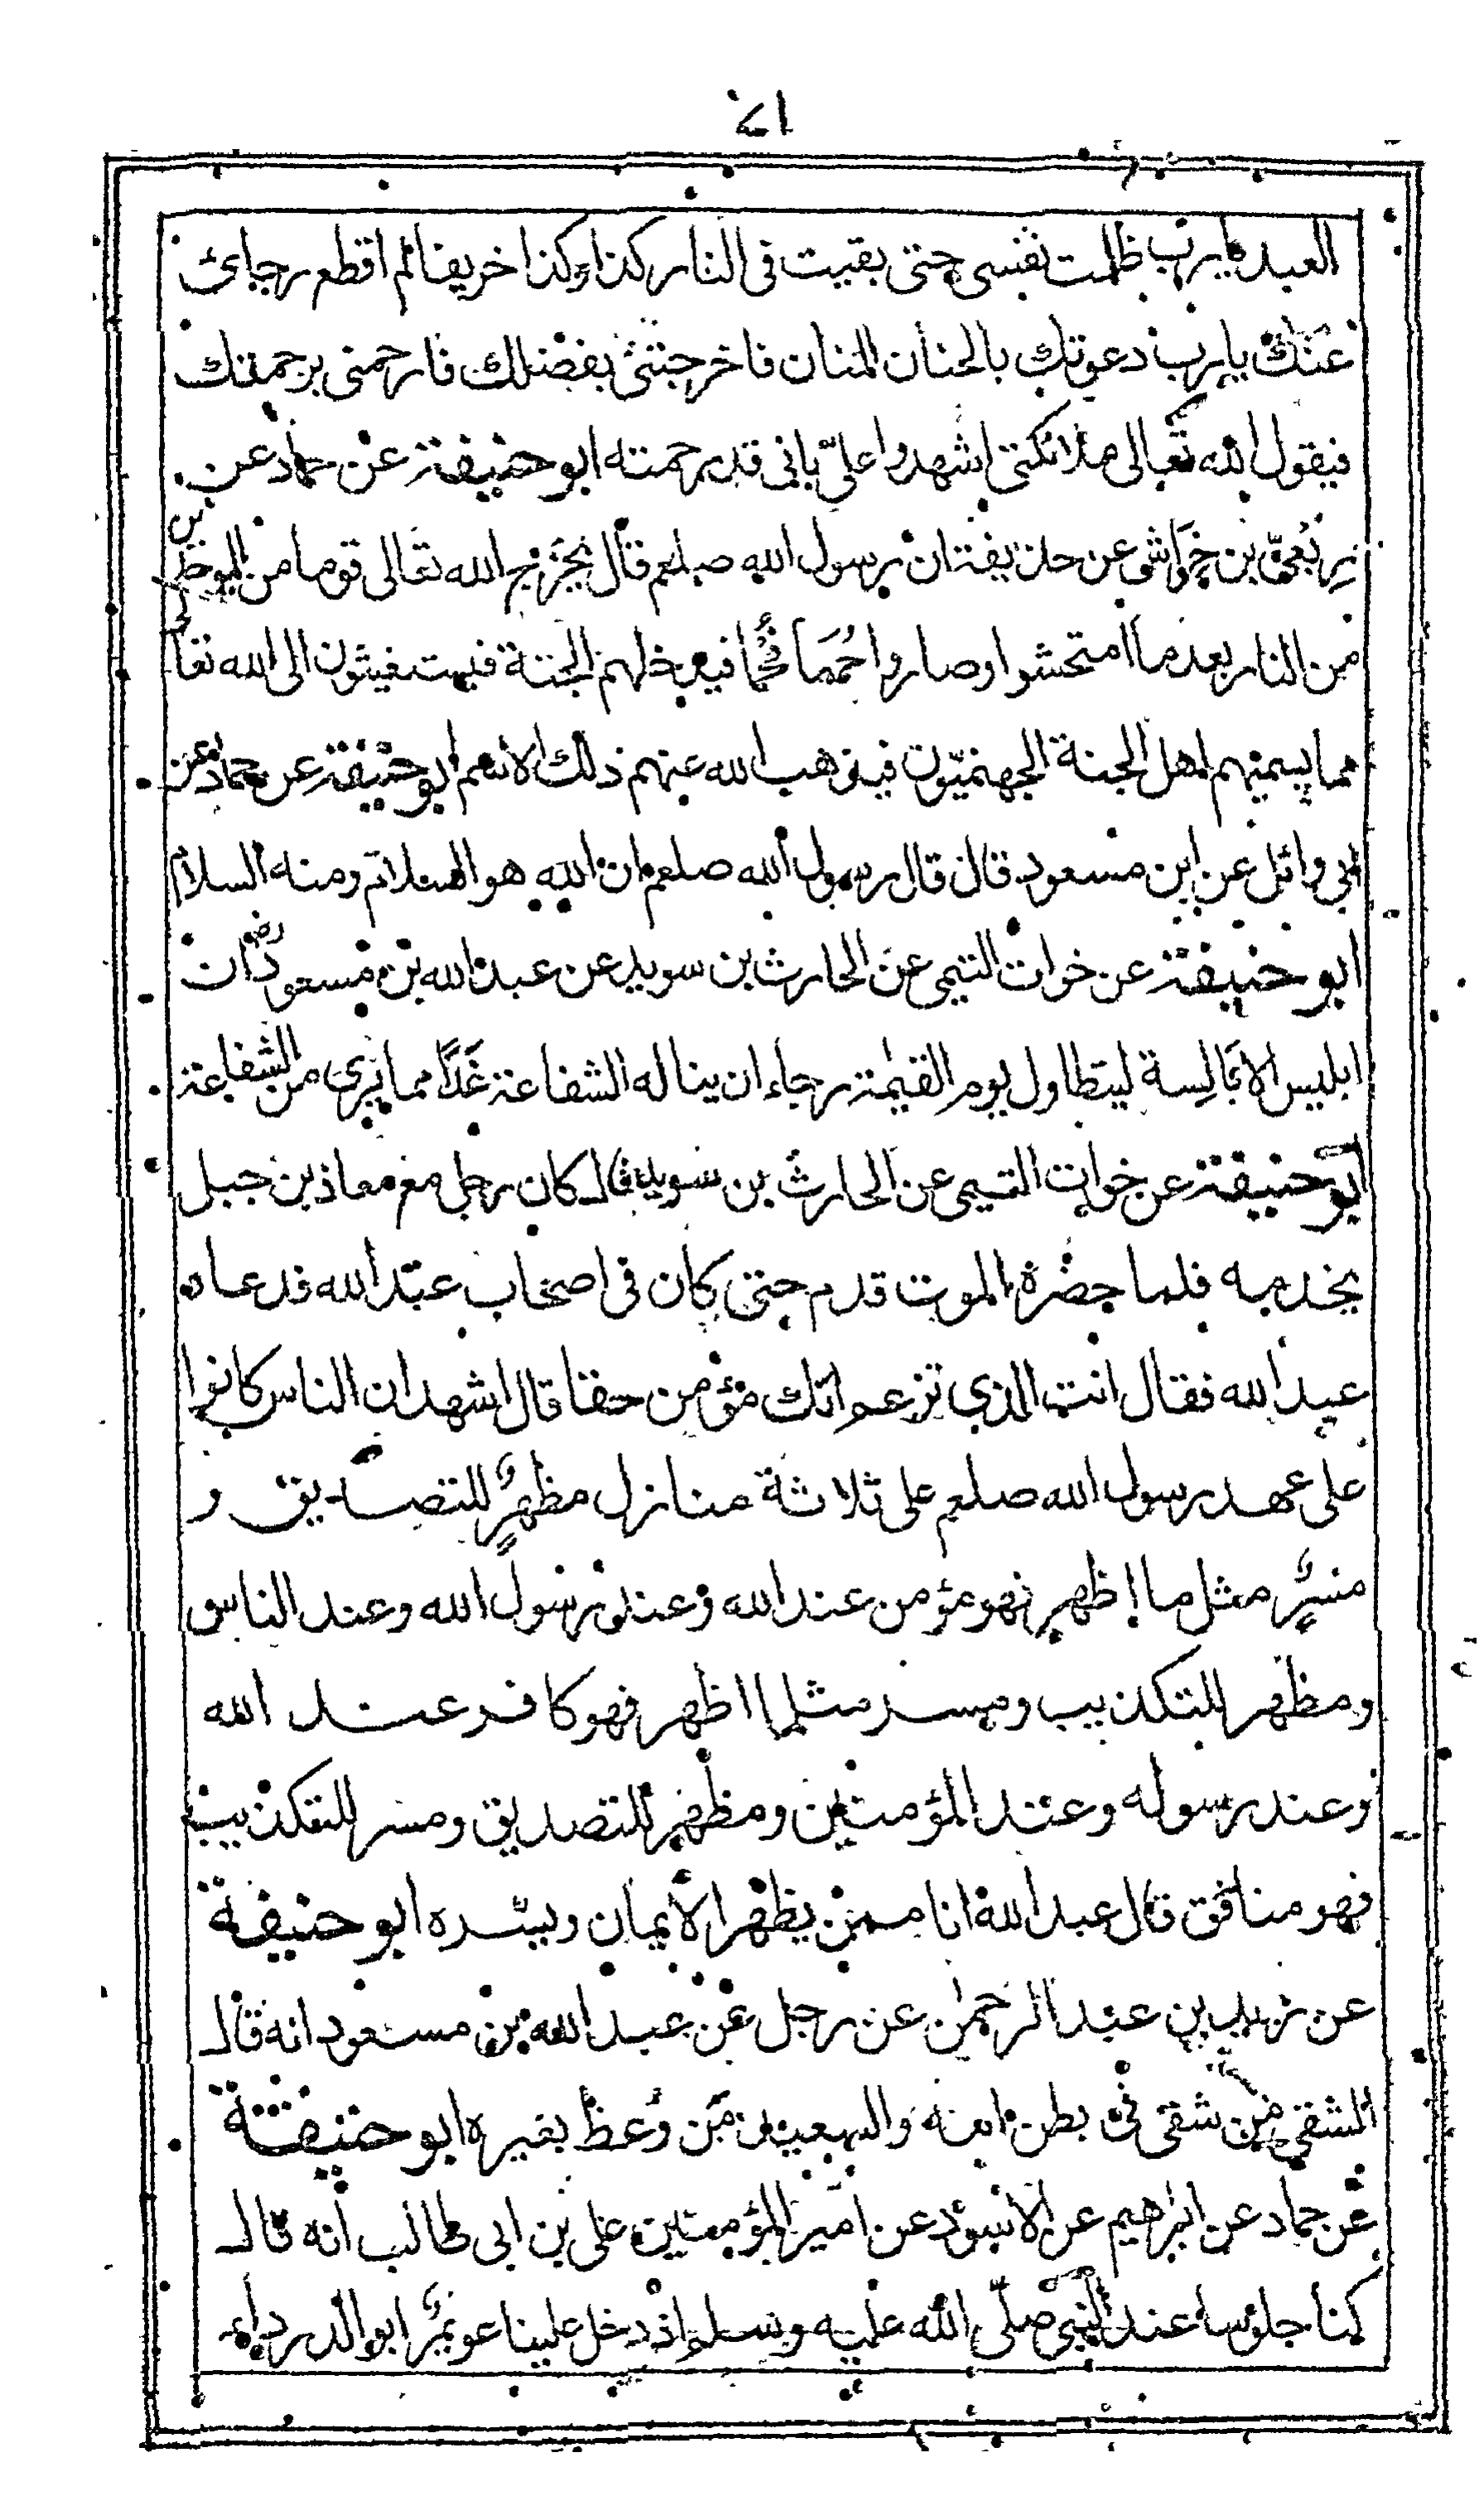 ١٧
العبد يا رب ظلمت نفسي حتى بقيت في النار كذا وكذا خريفا لم اقطع رجائي
عنك يا رب دعوتك بالحنان المنان فاخرجتني بفضلك فارحمني برحمتك
فيقول الله تعالى ملائكتي اشهدوا علي باني قد رحمته ابو حنيفة عن حماد عن
رِبعيّ بن خراش عن حذيفة ان رسول الله صلعم قال يخرج الله تعالى قوما من الموحدين
من النار بعد ما امتحشوا وصاروا حُمَمًا فحما فيدخلهم الجنة فيستغيثون الى الله تعالى
مما يسميهم اهل الجنة الجهنميّون فيذهب الله عنهم ذلك الاسم ابو حنيفة عن حماد عن
ابي وائل عن ابن مسعود قال قال رسول الله صلعم ان الله هو السلام ومنه السلام
ابو حنيفة عن خوات التيمي عن الحارث بن سويد عن عبد الله بن مسعود رض ان
ابليس الابالسة ليتطاول يوم القيمة رجاء ان يناله الشفاعة غَدًا مما يرى من الشفاعة
ابو حنيفة عن خوات التيمي عن الحارث بن سويد قال كان رجل مع معاذ بن جبل
يخدمه فلما حضره الموت قدم حتى كان في اصحاب عبد الله فدعاه
عبد الله فقال انت الذي تزعم انك مؤمن حقا قال اشهد ان الناس كانوا
على عهد رسول الله صلعم على ثلاثة منازل مظهرٍ للتصديق و
مسرٍ مثل ما اظهر فهو مؤمن عند الله وعند رسول الله وعند الناس
ومظهر للتكذيب ومسر مثلما اظهر فهو كافر عند الله
وعند رسوله وعند المؤمنين ومظهر للتصديق ومسر للتكذيب
فهو منافق قال عبد الله انا ممن يظهر الايمان ويسره ابو حنيفة
عن بن عبد الرحمن عن رجل عن عبد الله بن مسعود انه قال
الشقي من شقي في بطن امه والسعيد من وُعظ بغيره ابو حنيفة
عن حماد عن ابراهيم عن الاسود عن امير المؤمنين علي بن ابي طالب انه قال
كنا جلوسا عند النبي صلّى الله عليه وسلم اذ دخل علينا عويمرٌ ابو الدرداء